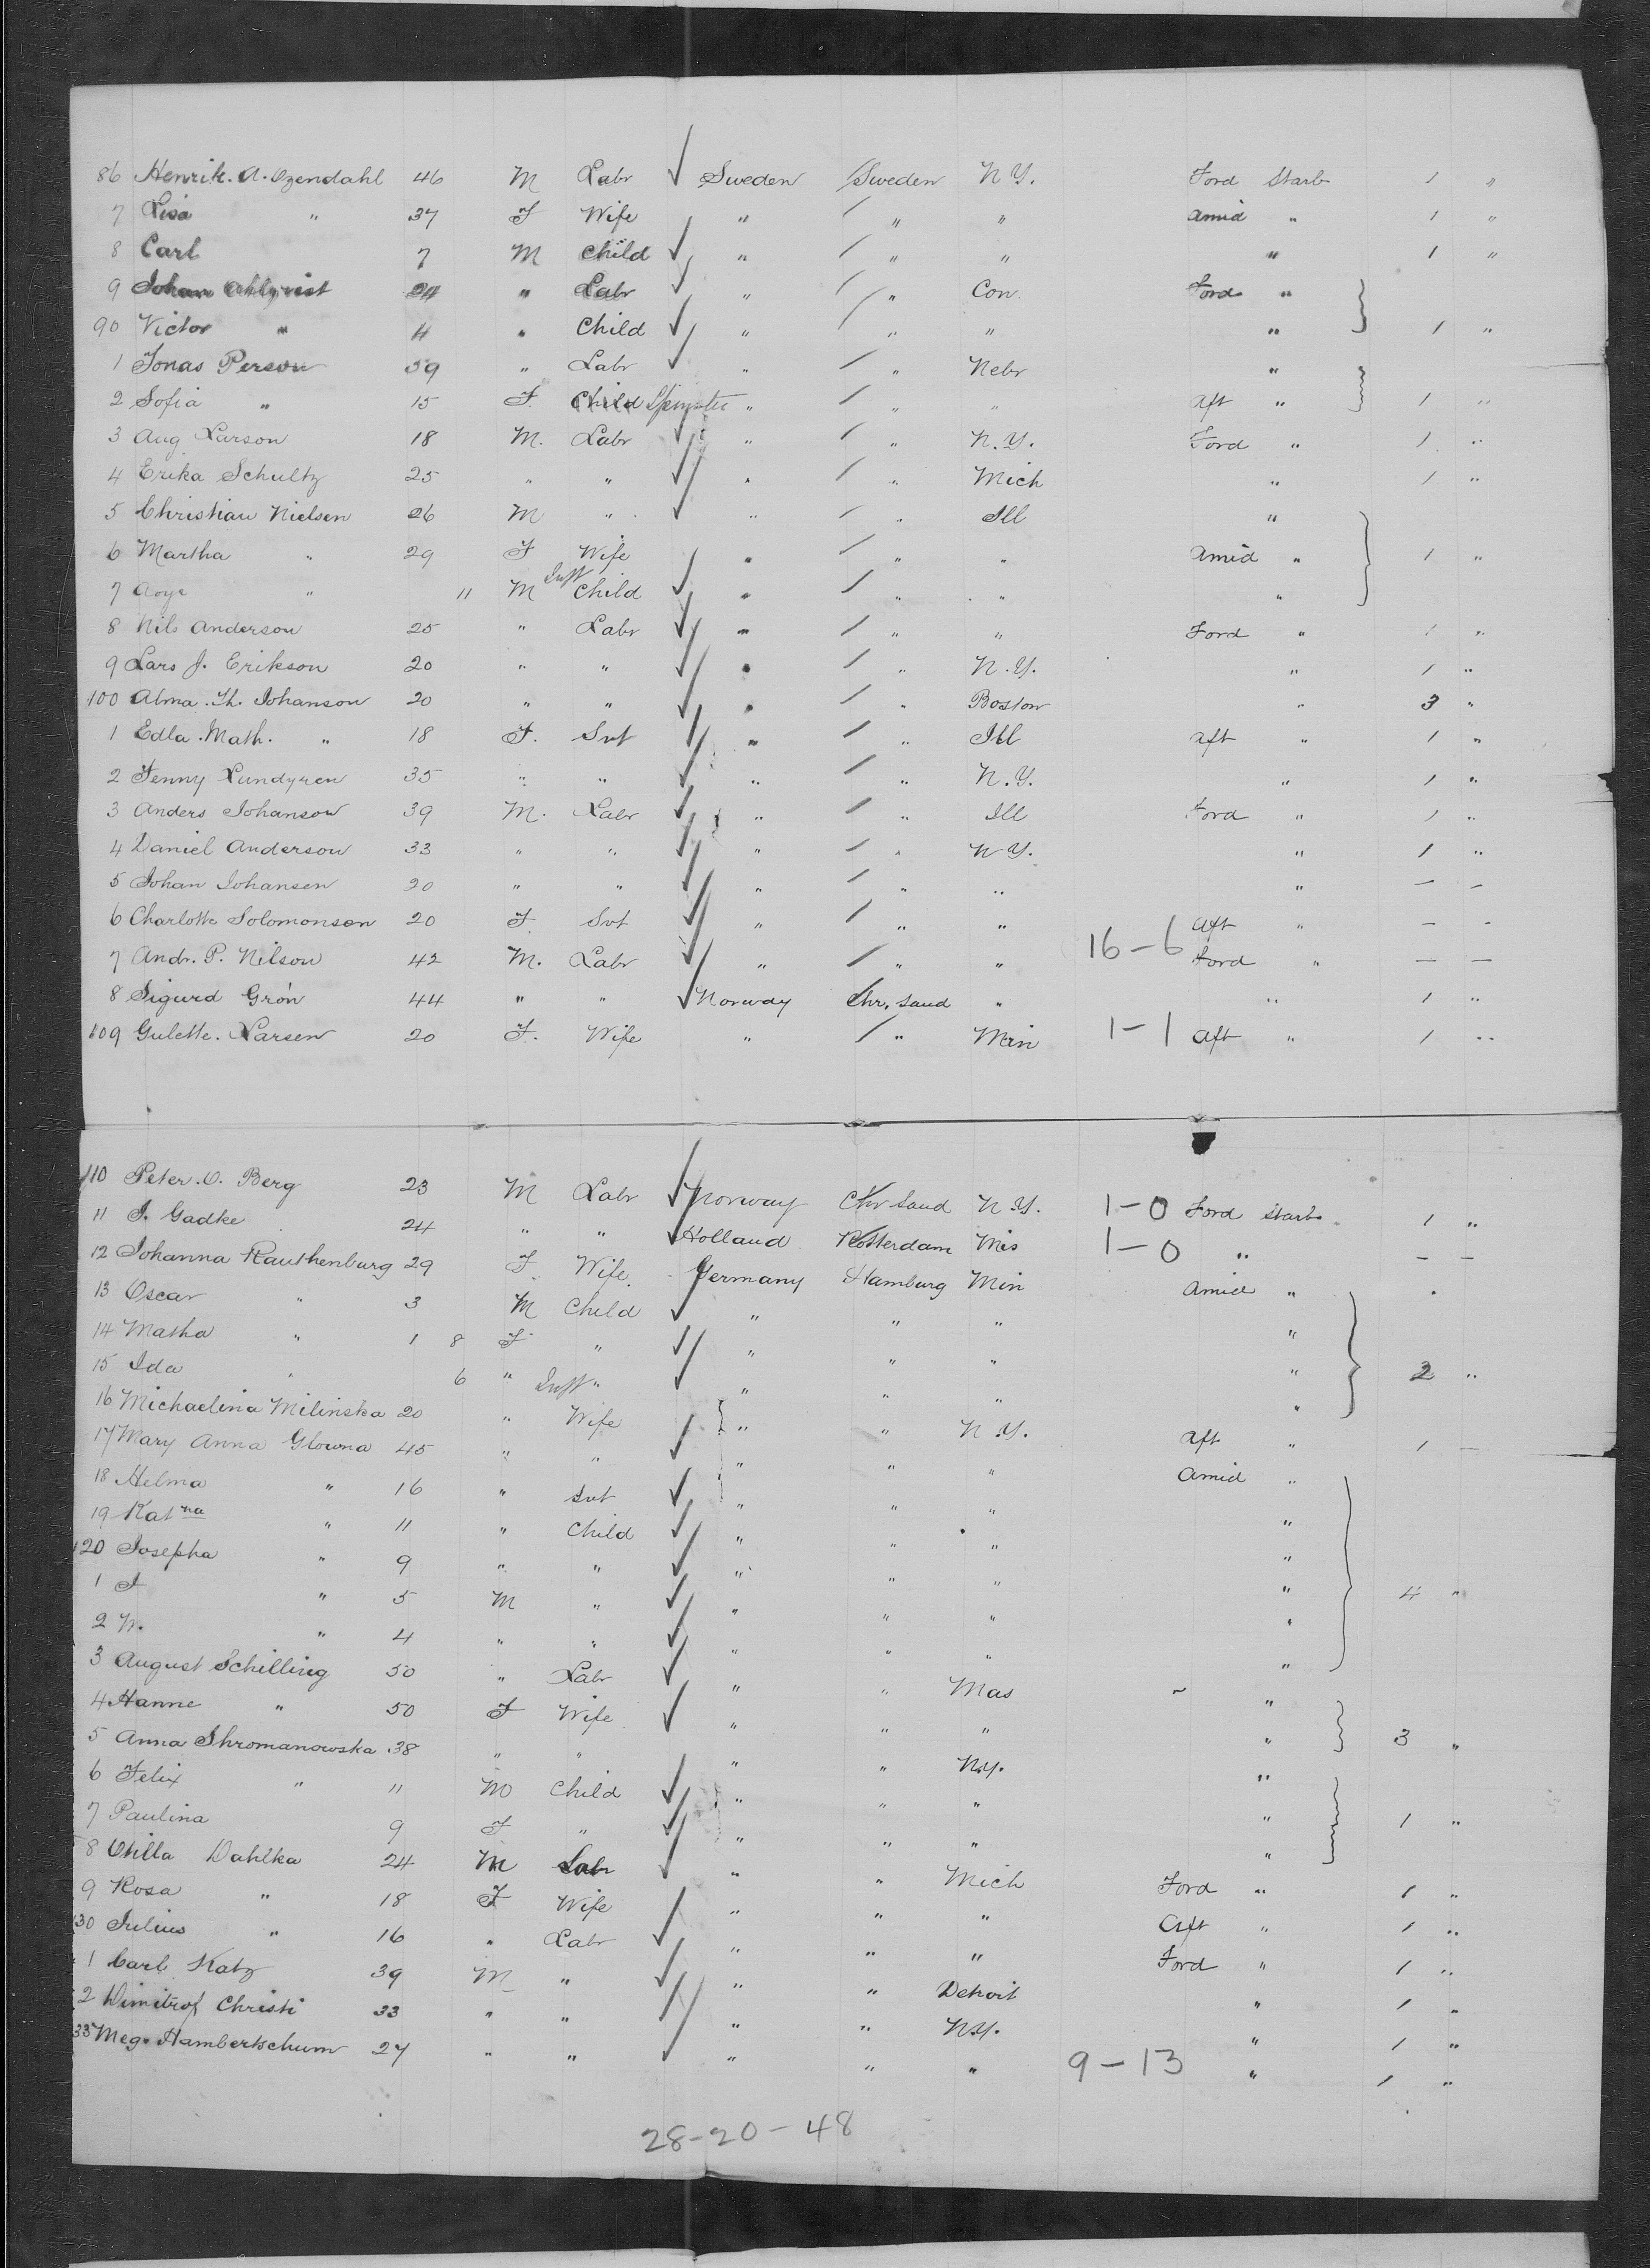 86 Henrik. A. Ozendahl 46 M Labr Sweden Sweden N Y. Ford Starb 1 "
7 Lisa " 37 F Wife " " " Amid " 1 "
8 Carl 7 M Child " " " " 1 "
9 Johan Ahlqvist 24 " Labr " " Con. Ford "
90 Victor " 4 " Child " " " " 1 "
1 Jonas Person 59 " Labr " " Nebr "
2 Sofia " 15 F. Child Spinster " " " Aft " 1 "
3 Aug Larson 18 M. Labr " " N.Y. Ford " 1 "
4 Erika Schultz 25 " " " " Mich " 1 "
5 Christian Nielsen 26 M " " " Ill "
6 Martha " 29 F Wife " " " Amid " 1 "
7 Aoge " 11 M Inft Child " " " "
8 Nils Anderson 25 " Labr " " " Ford " 1 "
9 Lars J. Erikson 20 " " " " N.Y. " 1 "
100 Alma. Th. Johanson 20 " " " " Boston " 3 "
1 Edla. Math. " 18 F. Svt " " Ill Aft " 1 "
2 Jenny Lundgren 35 " " " " N.Y. " 1 "
3 Anders Johanson 39 M. Labr " " Ill Ford " 1 "
4 Daniel Anderson 33 " " " " N Y. " 1 "
5 Johan Johansen 20 " " " " " " — —
6 Charlotte Solomonson 20 F. Svt " " " Aft " — —
7 Andr. P. Nilson 42 M. Labr " " " 16-6 Ford " — —
8 Sigurd Grón 44 " " Norway Chr. Sand " " 1 "
109 Gulette. Larsen 20 F. Wife " " Min 1-1 Aft " 1 "
110 Peter. O. Berg 23 M Labr Norway Chr Sand N.Y. 1-0 Ford Starb. 1 "
11 J. Gadke 24 " " Holland Rotterdam Mis 1-0 " — —
12 Johanna Rauthenburg 29 F. Wife. Germany Hamburg Min Amid "
13 Oscar " 3 M Child " " " "
14 Matha " 1 8 F " " " " " 2 "
15 Ida " 6 " Inft " " " " "
16 Michaelina Milinska 20 " Wife " " N Y. Aft " 1 —
17 Mary Anna Glowna 45 " " " " " Amid "
18 Helma " 16 " Svt " " " "
19 Katna " 11 " Child " " " "
120 Josepha " 9 " " " " " " 4 "
1 J " 5 M " " " " "
2 W. " 4 " " " " " "
3 August Schilling 50 " Labr " " Mas "
4 Hanne " 50 F Wife " " " " 3 "
5 Anna Shromanowska 38 " " " " N.Y. "
6 Felix " 11 M Child " " " " 1 "
7 Paulina 9 F " " " " "
8 Otilla Dahlka 24 M Labr " " Mich Ford " 1 "
9 Rosa " 18 F Wife " " " Aft " 1 "
130 Julius " 16 " Labr " " " Ford " 1 "
1 Carl Katz 39 M " " " Detroit " 1 "
2 Dimitrof Christi 33 " " " " N.Y. " 1 "
33 Meg. Hambertschum 27 " " " " " 9-13 " 1 "
28-20-48